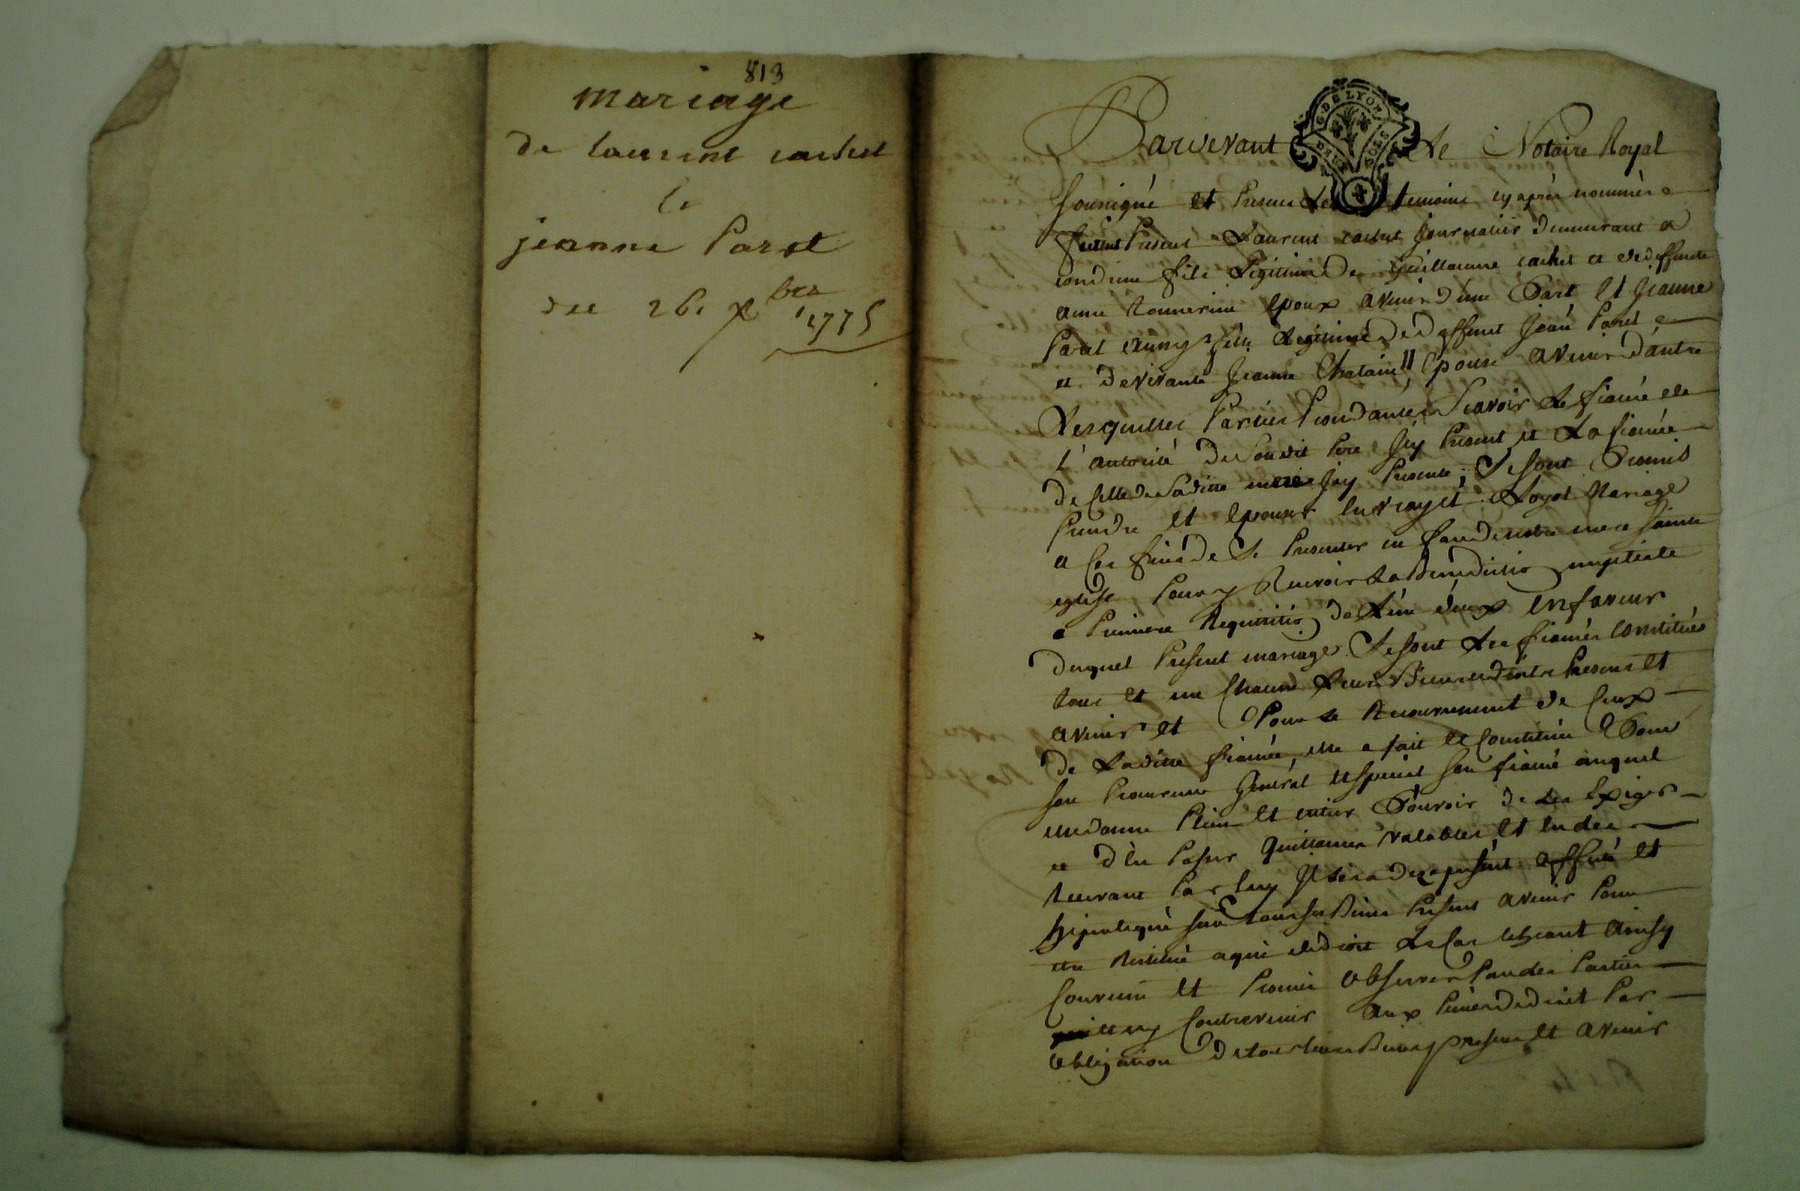 813
mariage
de laurent cachet
&
jeanne Paret
du 26. Xbre
1775
Pardevant Le Notaire Royal
G. DE LYON
DEUX SOLS
Soussigné et Presens Les temoins cy après nommés
furent Presens Laurent cachet journalier demeurant a
fils Legitime De Guillaume cachet et de deffunte
anne epoux avenir d'une Part Et Jeanne
Paret fille Legitime De deffunt Jean Paret
et de vivante Jeanne Chatain Epouse avenir d'autre
Lesquelles Parties Procedantes Scavoir Le fiancé de
L'autorité De Son dit Pere Icy Present et La fiancée
De Celle de Sa ditte mere Icy Presente, Se Sont Promis
Prendre Et Epouser En vray et Loyal Mariage
a Ces fins de Se Presenter en face de notre mere Sainte
eglise Pour y Recevoir La Benediction nuptiale
a Premiere Requisition de L'un d'eux En faveur
duquel Present mariage Se Sont Les fiancés Constitués
tous Et un Chacun Leurs Biens Presens Et
avenir Et Pour Le Recouvrement de Ceux
De La ditte fiancée, elle a fait Et Constitué Pour
Son Procureur General Et Special Son fiancé auquel
elle donne Plein Et entier Pouvoir De Les Exiger
et d'en Passer Quittances valables Et En les
Recevant Par Luy Il les a des a present assuré Et
hipotequé Sur tous Ses Biens Presens avenir Pour
etre Restitué a qui de droit Le Cas Echeant Ainsy
Convenu Et Promis observer Par Les Parties
et ny Contrevenir Aux Peines de droit Par
obligation De tous Leurs Biens presens Et avenir